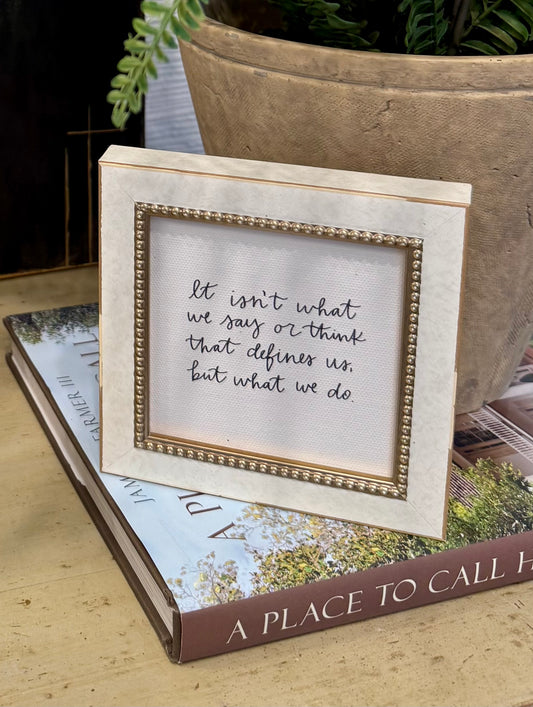 It isn't what
we say or think
that defines us,
but what we do.
FARMER III
A PLACE TO CALL H